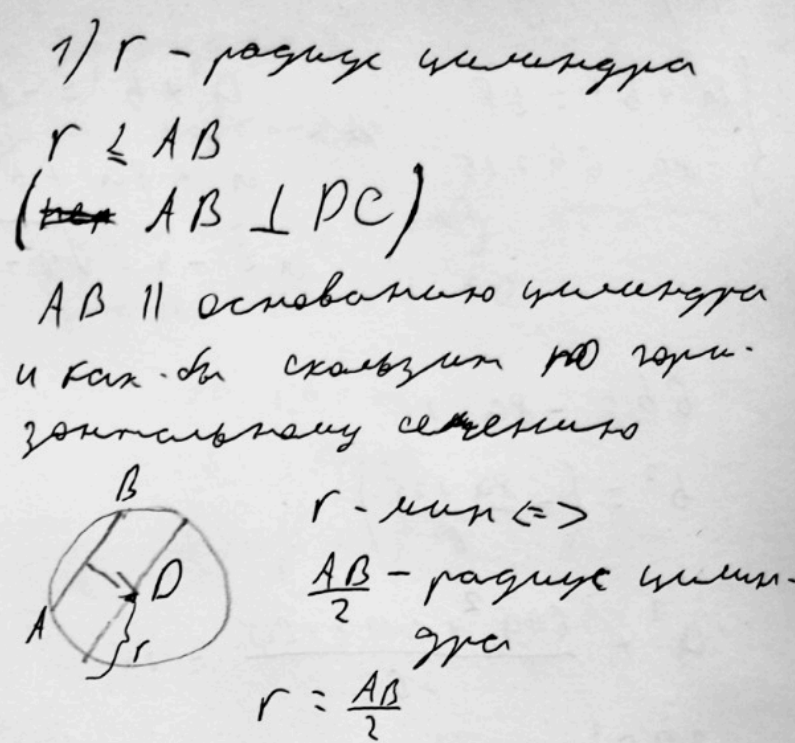 1) r - радиус цилиндра
r ≤ AB
( AB ⊥ DC)
AB || основанию цилиндра
и как-бы скользит по гори-
зонтальному сечению
B
D
A
r
r - мин <=>
AB/2 - радиус цилин-
дра
r = AB/2